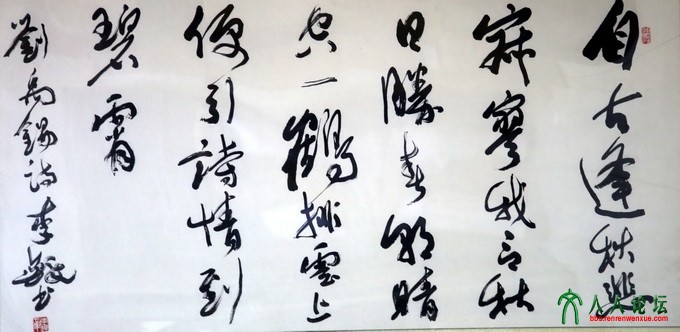 自古逢秋悲
寂寥我言秋
日勝春朝晴
空一鶴排雲上
便引詩情到
碧霄
劉禹錫詩李书
人人论坛
bbs.renrenwenxue.com